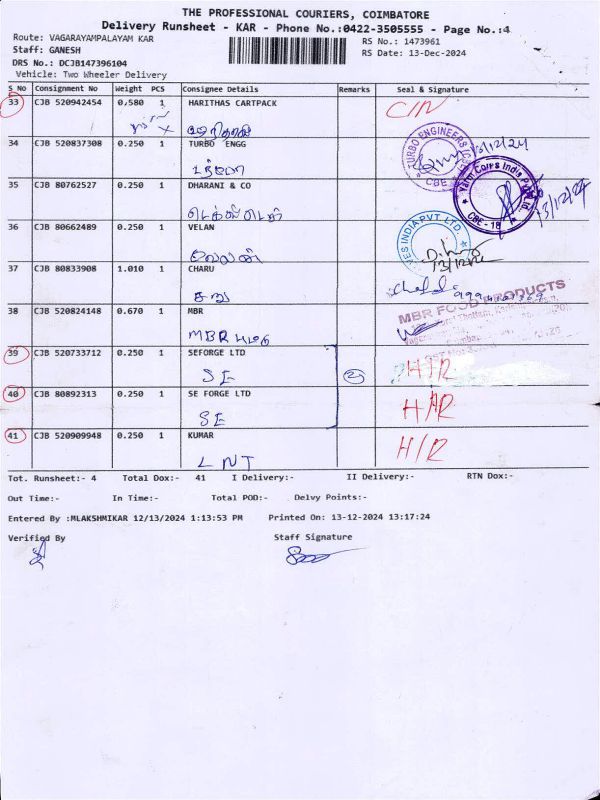 THE PROFESSIONAL COURIERS, COIMBATORE
Delivery Runsheet - KAR - Phone No.:0422-3505555 - Page No.:4
Route: VAGARAYAMPALAYAM KAR
RS No.: 1473961
Staff: GANESH
RS Date: 13-Dec-2024
DRS No.: DCJB147396104
Vehicle: Two Wheeler Delivery
S No Consignment No Weight PCS Consignee Details Remarks Seal & Signature
33 CJB 520942454 0.580 1 HARITHAS CARTPACK C/N
34 CJB 520837308 0.250 1 TURBO ENGG
TURBO ENGINEERS CBE 13/12/24
35 CJB 80762527 0.250 1 DHARANI & CO
Yarn Corps India Pvt Ltd. CBE - 18 13/12/24
36 CJB 80662489 0.250 1 VELAN
வேலன்
INDIA PVT. LTD. 13/12/24
37 CJB 80833908 1.010 1 CHARU
சாரு
38 CJB 520824148 0.670 1 MBR
MBR
MBR FOOD PRODUCTS
39 CJB 520733712 0.250 1 SEFORGE LTD H/R
SE 2
40 CJB 80892313 0.250 1 SE FORGE LTD H/R
SE
41 CJB 520909948 0.250 1 KUMAR H/R
LNT
Tot. Runsheet:- 4 Total Dox:- 41 I Delivery:- II Delivery:- RTN Dox:-
Out Time:- In Time:- Total POD:- Delvy Points:-
Entered By :MLAKSHMIKAR 12/13/2024 1:13:53 PM Printed On: 13-12-2024 13:17:24
Verified By Staff Signature